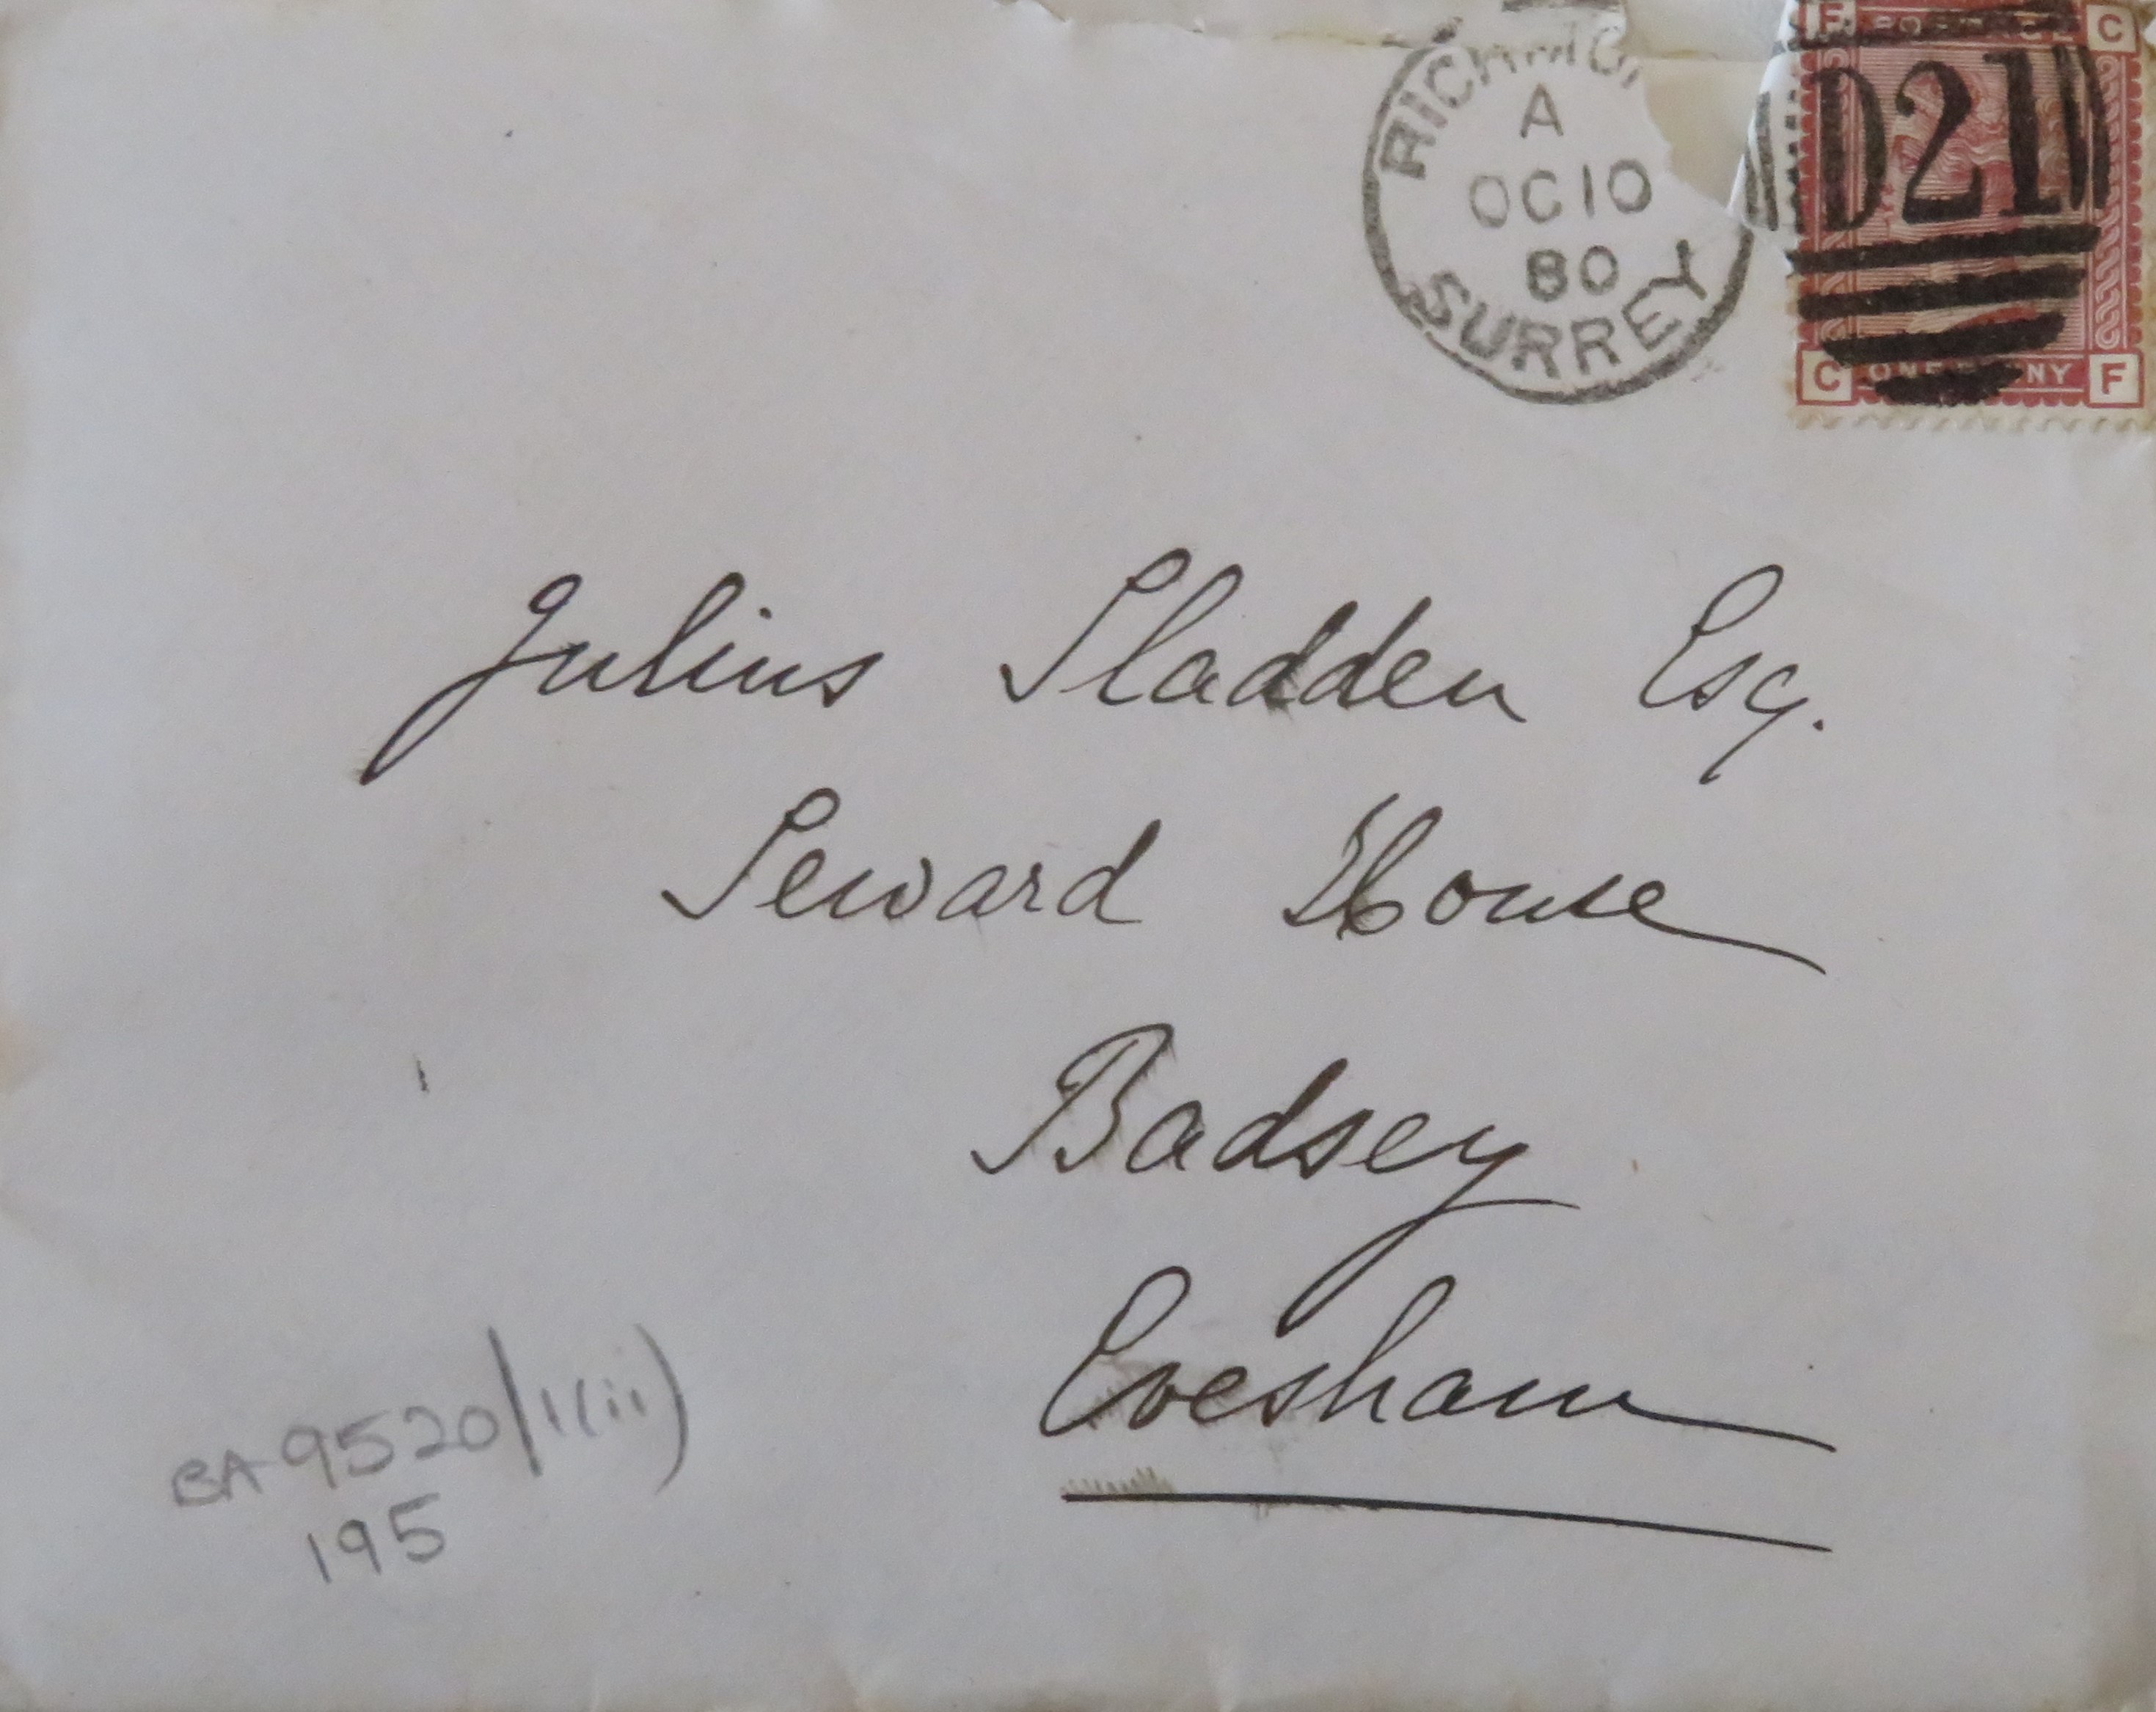 RICHMO
A
OC 10
80
SURREY
F C
D21
C ONE PENNY F
Julius Sladden Esq.
Seward House
Badsey
Evesham
BA 9520/1(ii)
195